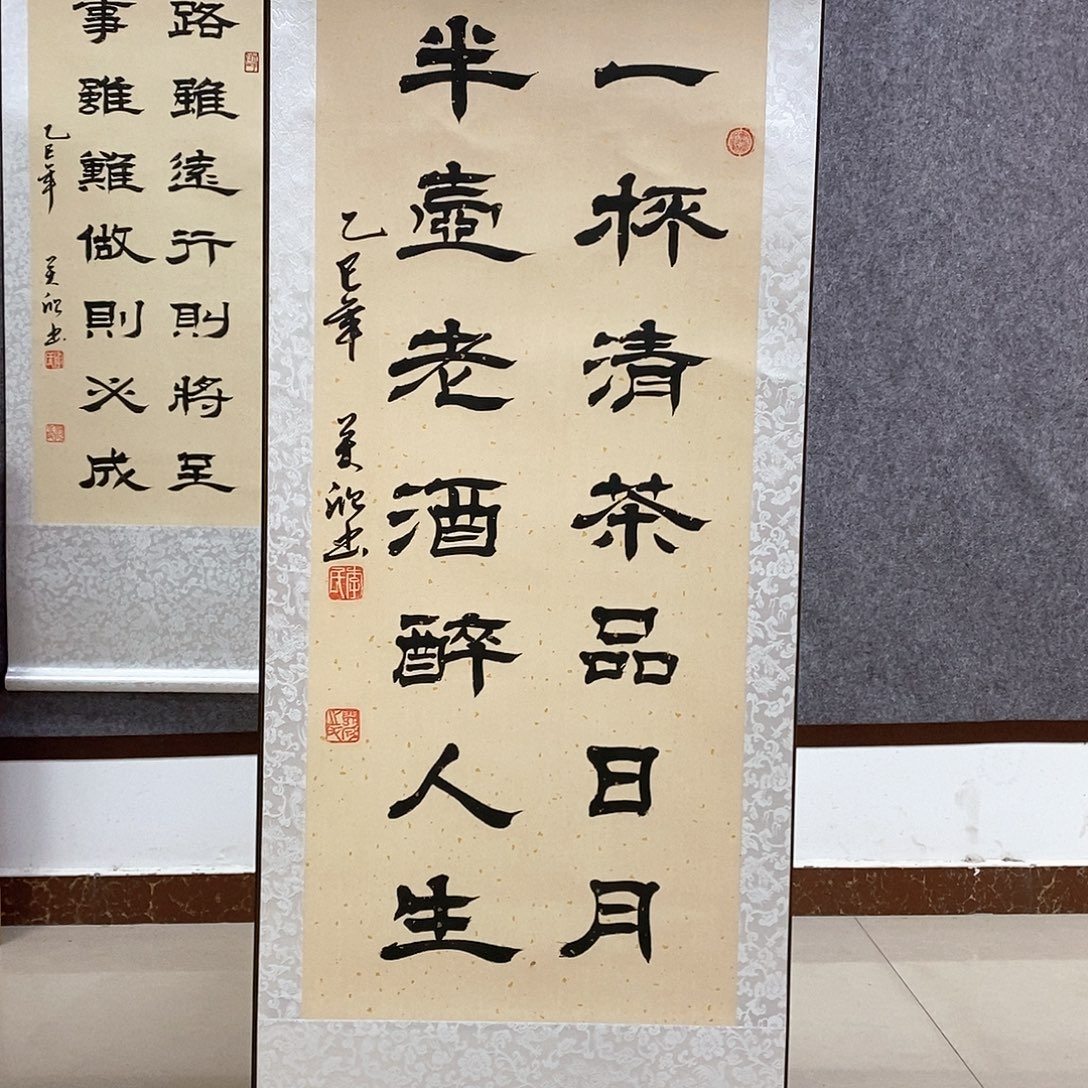 一杯清茶品日月
半壺老酒醉人生
乙巳年 美欣书
路雖遠行則將至
事雖難做則必成
乙巳年 美欣书